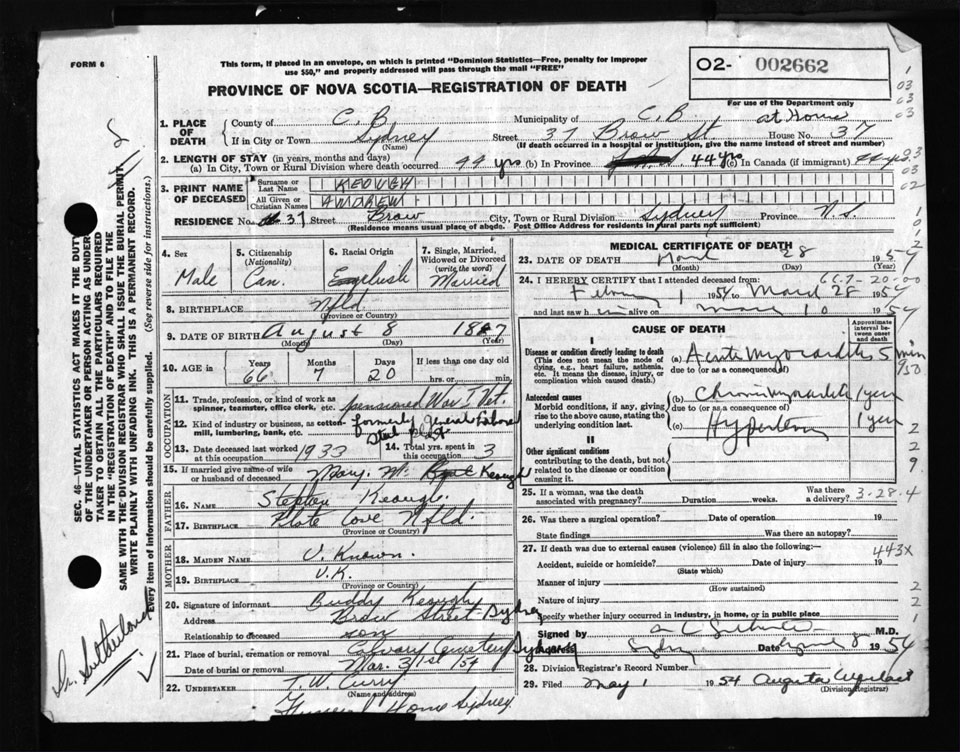 FORM 6
This form, if placed in an envelope, on which is printed "Dominion Statistics—Free, penalty for improper
use $50," and properly addressed will pass through the mail "FREE"
O2- 002662
For use of the Department only
PROVINCE OF NOVA SCOTIA—REGISTRATION OF DEATH
1. PLACE OF DEATH
County of C. B. Municipality of C. B. at Home
If in City or Town Sydney Street 37 Brow St House No. 37
(Name) (If death occurred in a hospital or institution, give the name instead of street and number)
2. LENGTH OF STAY (in years, months and days)
(a) In City, Town or Rural Division where death occurred 44 yrs (b) In Province 44 yrs (c) In Canada (if immigrant) 44 yrs.
3. PRINT NAME OF DECEASED
Surname or Last Name KEOUGH
All Given or Christian Names ANDREW
RESIDENCE No. 37 Street Brow City, Town or Rural Division Sydney Province N.S.
(Residence means usual place of abode. Post Office Address for residents in rural parts not sufficient)
4. Sex Male
5. Citizenship (Nationality) Can.
6. Racial Origin
7. Single, Married, Widowed or Divorced (write the word) Married
8. BIRTHPLACE Nfld
(Province or Country)
9. DATE OF BIRTH August 8 1887
(Month) (Day) (Year)
10. AGE in Years 66 Months 7 Days 20 If less than one day old hrs. or min.
OCCUPATION
11. Trade, profession, or kind of work as spinner, teamster, office clerk, etc. pensioned War I Vet.
12. Kind of industry or business, as cotton mill, lumbering, bank, etc. formerly General Labore
Steel Plant
13. Date deceased last worked at this occupation 1933
14. Total yrs. spent in this occupation 3
15. If married give name of wife or husband of deceased Mary. Keough
FATHER
16. Name Stephen Keough.
17. Birthplace Plate Cove Nfld.
(Province or Country)
MOTHER
18. Maiden Name U. Known.
19. Birthplace U.K.
(Province or Country)
20. Signature of informant Buddy Keough
Address Brow Street Sydney
Relationship to deceased son
21. Place of burial, cremation or removal Calvary Cemetery Sydney
Date of burial or removal Mar. 31st 54
22. Undertaker T. W. Curry
(Name and address)
Funeral Home Sydney
MEDICAL CERTIFICATE OF DEATH
23. DATE OF DEATH March 28 1954
(Month) (Day) (Year)
667-20-00
24. I HEREBY CERTIFY that I attended deceased from:
February 1 1954 to March 28 1954
and last saw him alive on March 10 1954
CAUSE OF DEATH
Approximate interval between onset and death
I
Disease or condition directly leading to death
(This does not mean the mode of dying, e.g., heart failure, asthenia, etc. It means the disease, injury, or complication which caused death.)
(a) Acute Myocarditis 5 min
due to (or as a consequence of)
Antecedent causes
Morbid conditions, if any, giving rise to the above cause, stating the underlying condition last.
(b) Chronic Myocarditis 1 year
due to (or as a consequence of)
(c) Hypertension 1 year
II
Other significant conditions contributing to the death, but not related to the disease or condition causing it.
25. If a woman, was the death associated with pregnancy? Duration weeks. Was there a delivery? 3-28-4
26. Was there a surgical operation? Date of operation 19
State findings Was there an autopsy?
27. If death was due to external causes (violence) fill in also the following:— 443X
Accident, suicide or homicide? Date of injury 19
(State which)
Manner of injury
(How sustained)
Nature of injury
Specify whether injury occurred in industry, in home, or in public place
Signed by M.D.
Address Sydney Date 8 1954
28. Division Registrar's Record Number
29. Filed May 1 1954 Augusta
(Division Registrar)
SEC. 46—VITAL STATISTICS ACT MAKES IT THE DUTY
OF THE UNDERTAKER OR PERSON ACTING AS UNDER-
TAKER TO OBTAIN ALL THE PARTICULARS REQUIRED
IN THE "REGISTRATION OF DEATH" AND TO FILE THE
SAME WITH THE DIVISION REGISTRAR WHO SHALL ISSUE THE BURIAL PERMIT
WRITE PLAINLY WITH UNFADING INK. THIS IS A PERMANENT RECORD.
Every item of information should be carefully supplied. (See reverse side for instructions.)
Dr. Sutherland